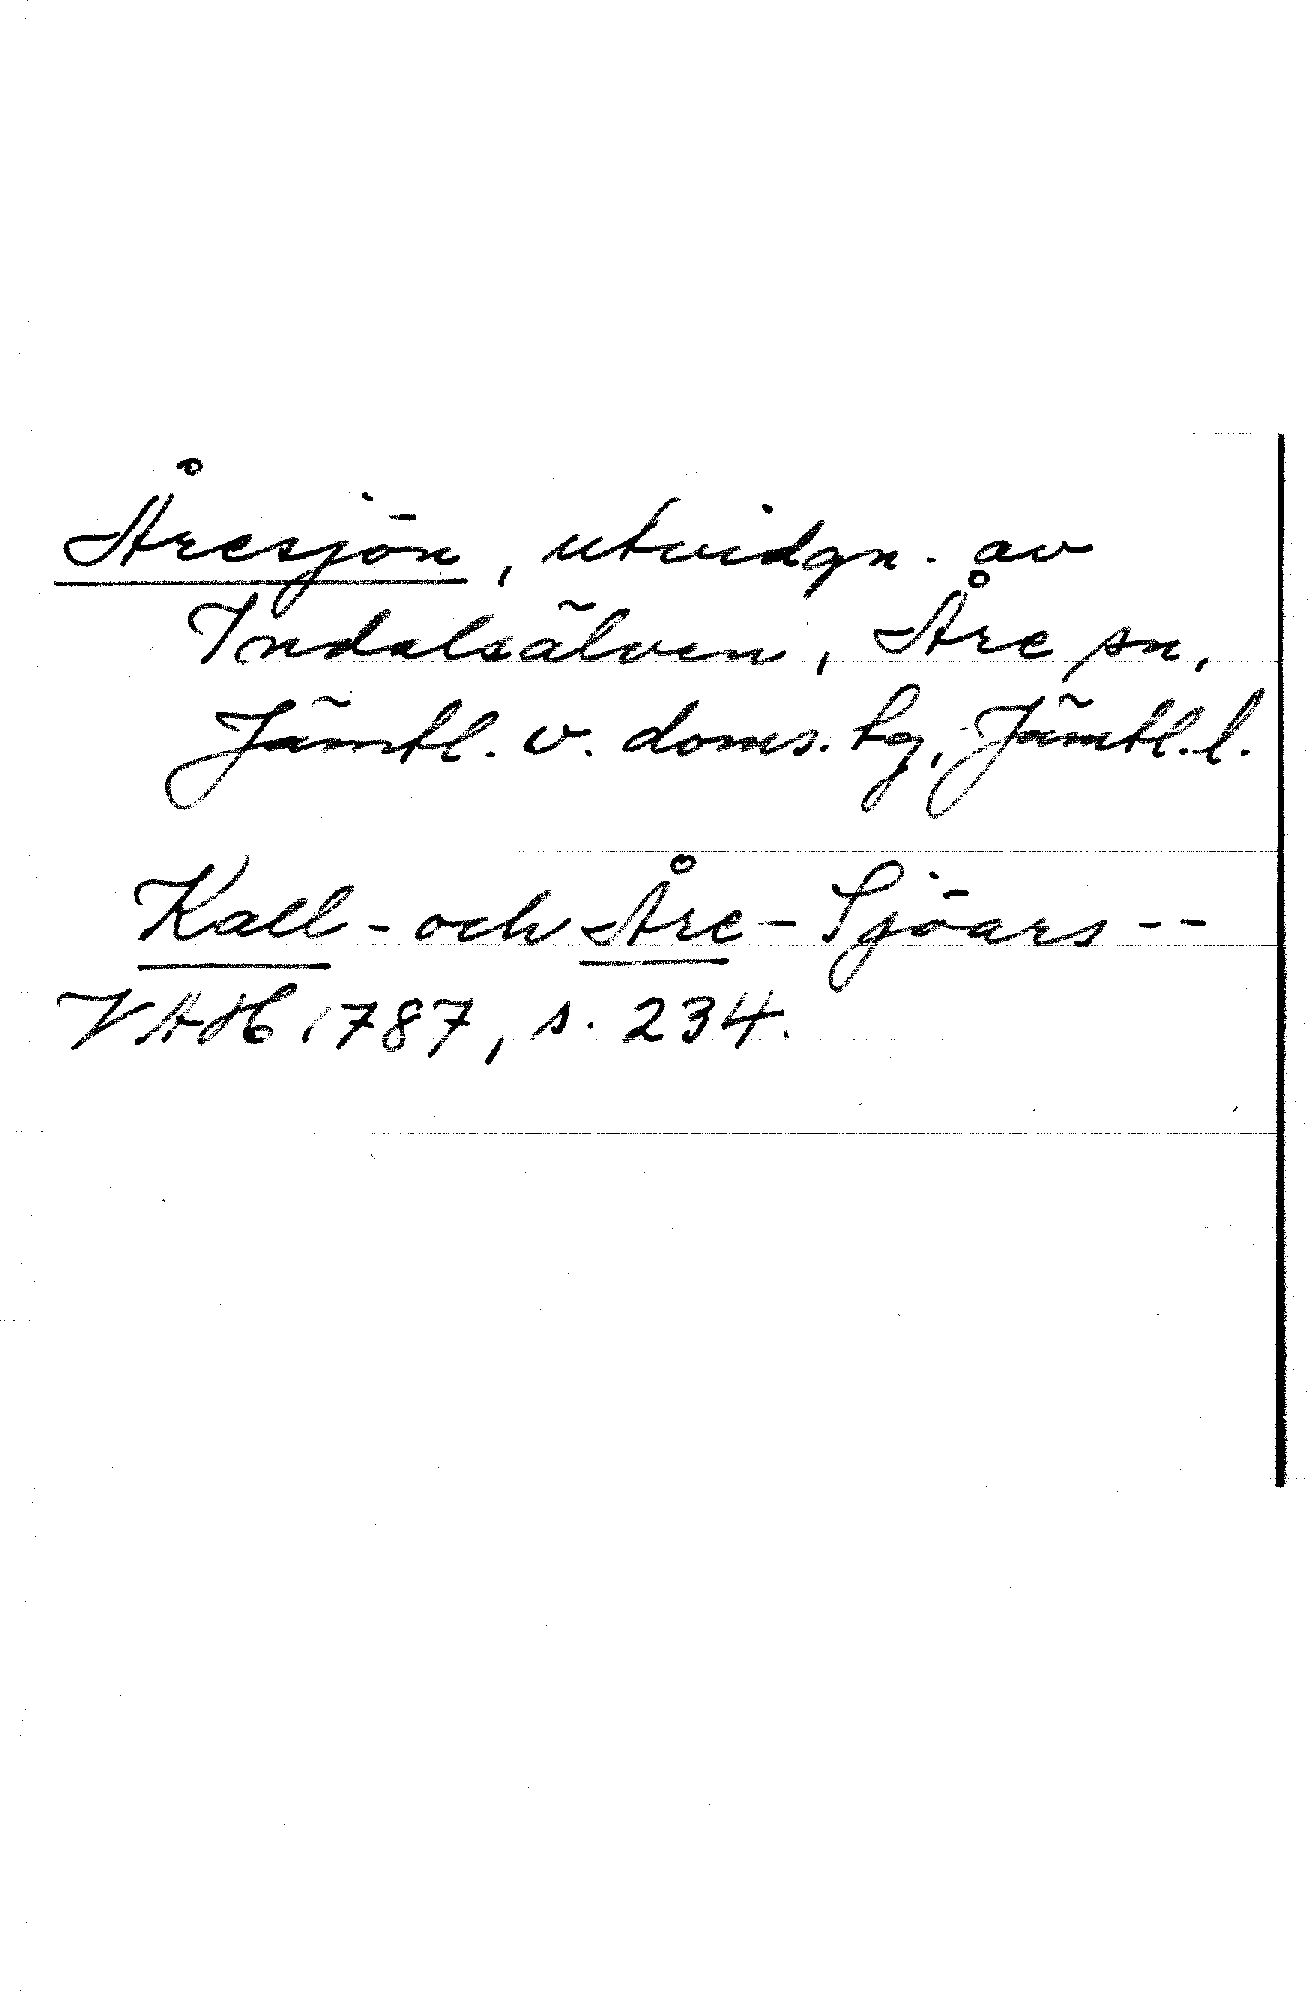 Åresjön, utvidgn. av
Indalsälven, Åre sn,
Jämtl. v. doms. tg, Jämtl. l.
Kall- och Åre-Sjöars --
VAH 1787, s. 234.